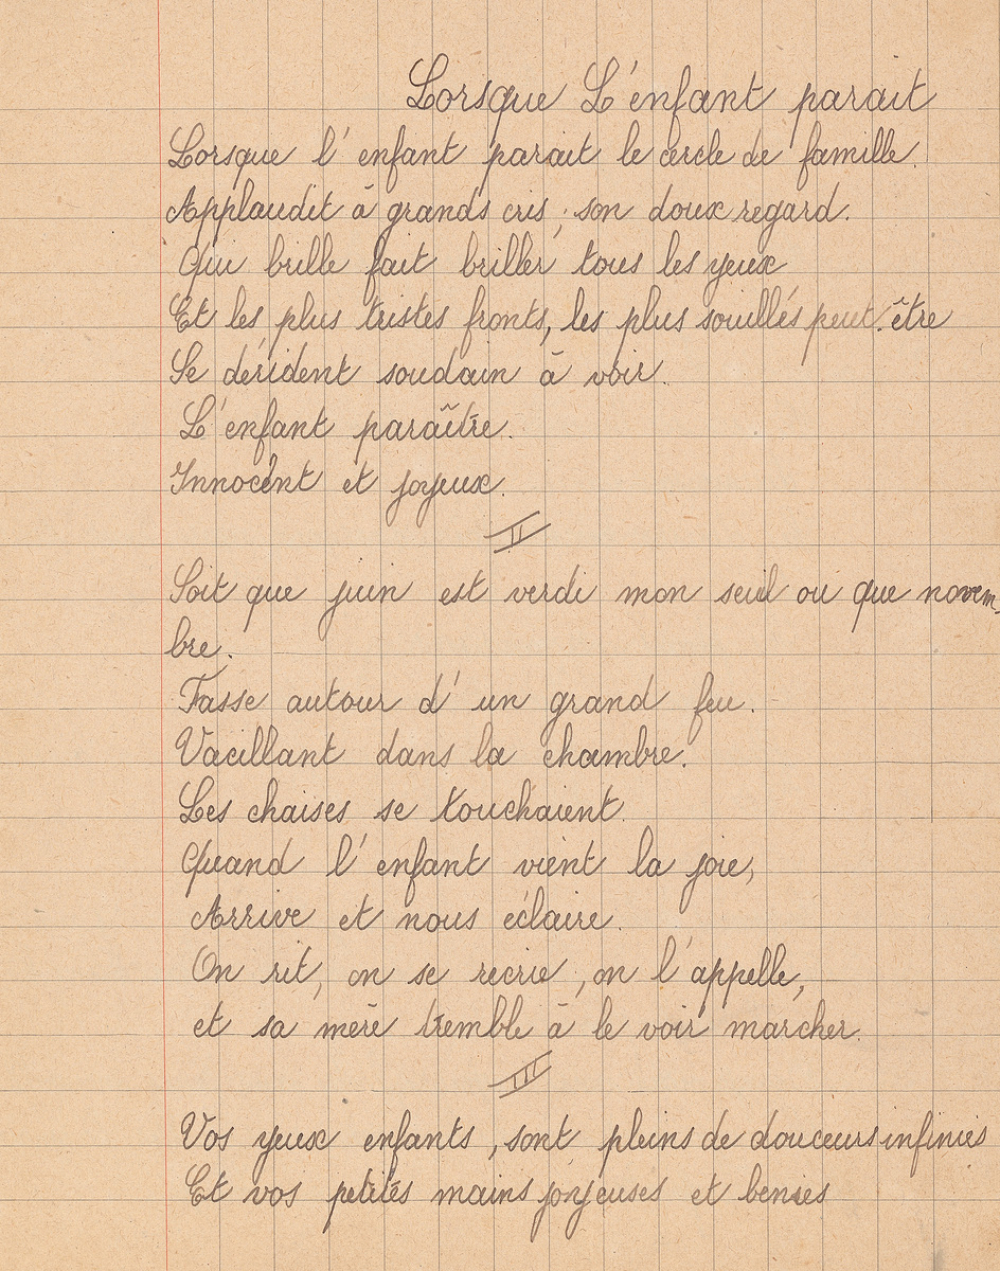 Lorsque L'enfant parait
Lorsque l'enfant parait le cercle de famille.
Applaudit à grands cris ; son doux regard.
Qui brille fait briller tous les yeux
Et les plus tristes fronts, les plus souillés peut-être
Se dérident soudain à voir.
L'enfant paraître.
Innocent et joyeux.
II
Soit que juin est verdi mon seuil ou que novem-
bre.
Fasse autour d'un grand feu.
Vacillant dans la chambre.
Les chaises se touchaient.
Quand l'enfant vient la joie,
Arrive et nous éclaire.
On rit, on se recrie, on l'appelle,
et sa mère tremble à le voir marcher.
III
Vos yeux enfants, sont pleins de douceurs infinies
Et vos petites mains joyeuses et benies